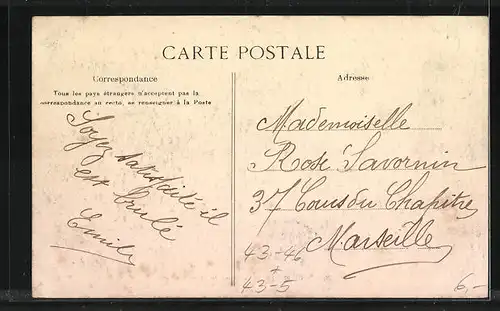 CARTE POSTALE
Correspondance
Tous les pays étrangers n'acceptent pas la
correspondance au recto, se renseigner à la Poste
Soyez satisfaite il
est brulé
Emile
Adresse
Mademoiselle
Rose Savornin
37 Cours du Chapitre
Marseille
43-46
+
43-5
6,-